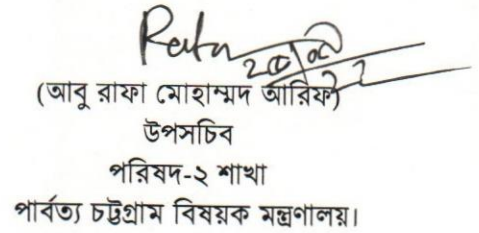 (আবু রাফা মোহাম্মদ আরিফ)
উপসচিব
পরিষদ-২ শাখা
পার্বত্য চট্টগ্রাম বিষয়ক মন্ত্রণালয়।